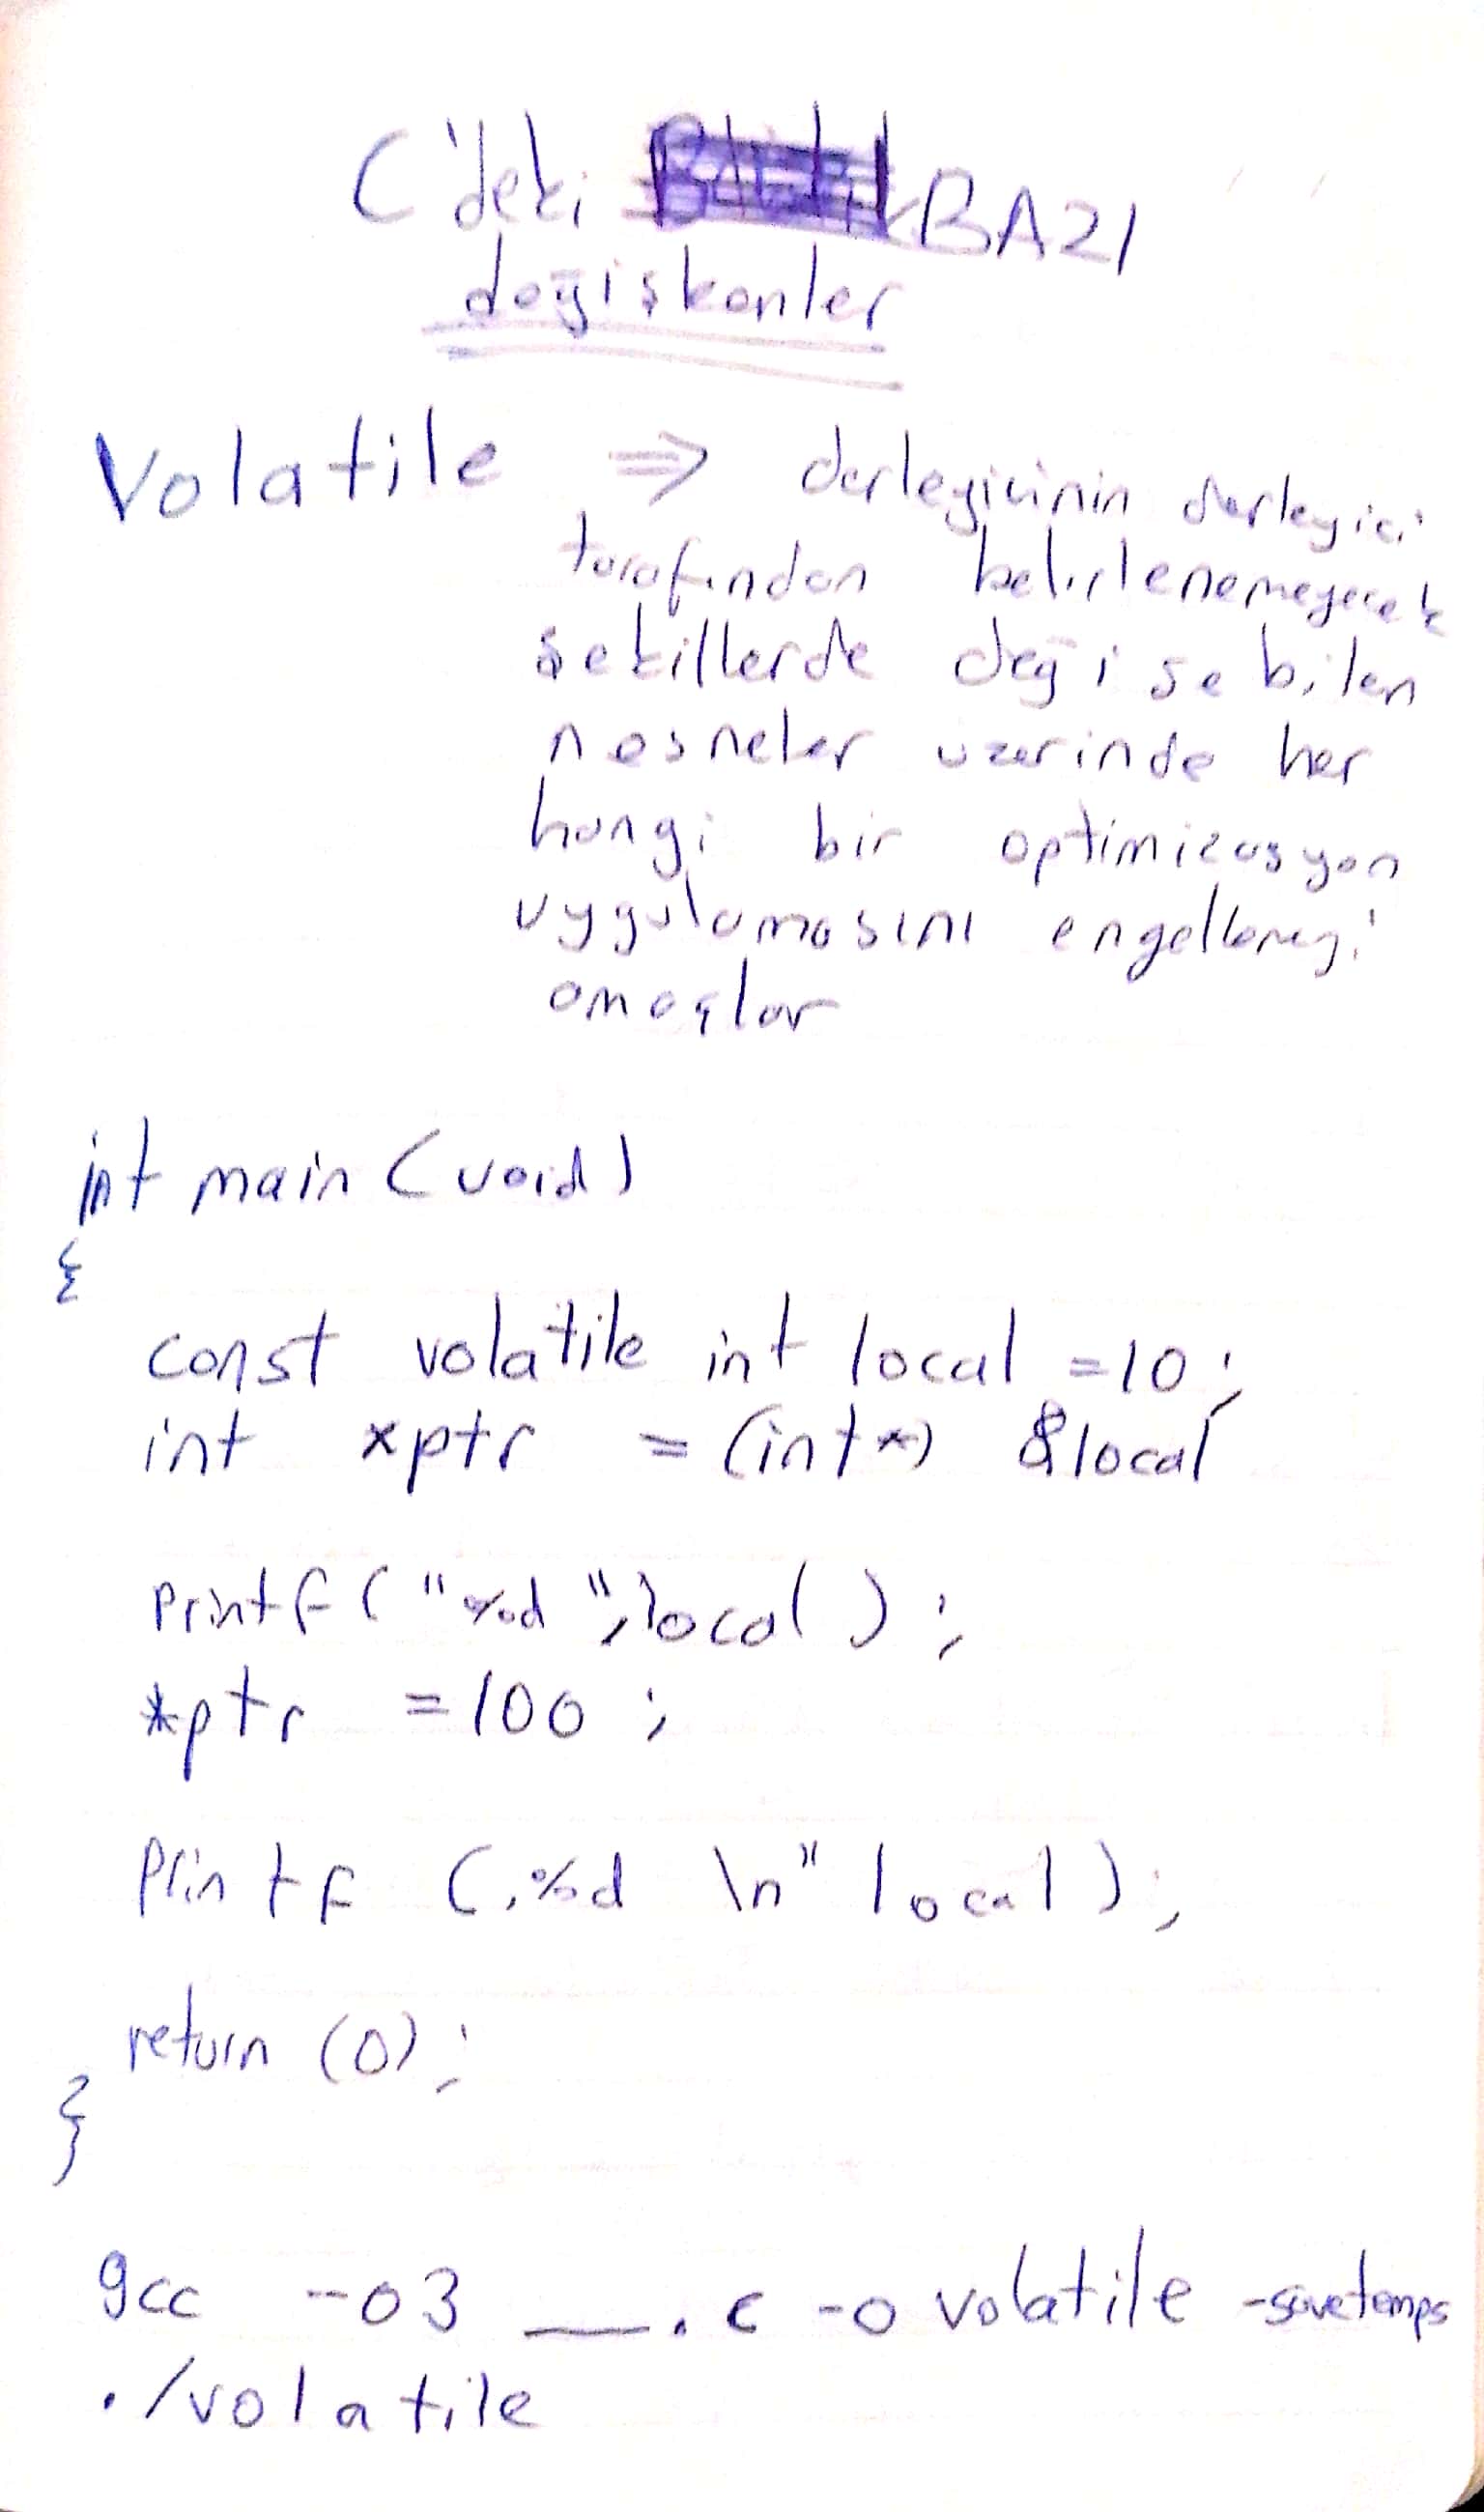 C'deki BAZI
değişkenler
Volatile ⇒ derleyicinin derleyici
tarafından belirlenemeyecek
şekillerde değişebilen
nesneler üzerinde her
hangi bir optimizasyon
uygulamasını engellemeyi
amaçlar
int main (void)
{
const volatile int local =10;
int *ptr = (int*) &local
printf ("%d", local);
*ptr =100;
Printf (,%d \n" local);
return (0);
}
gcc -o3 __.c -o volatile -savetemps
./volatile